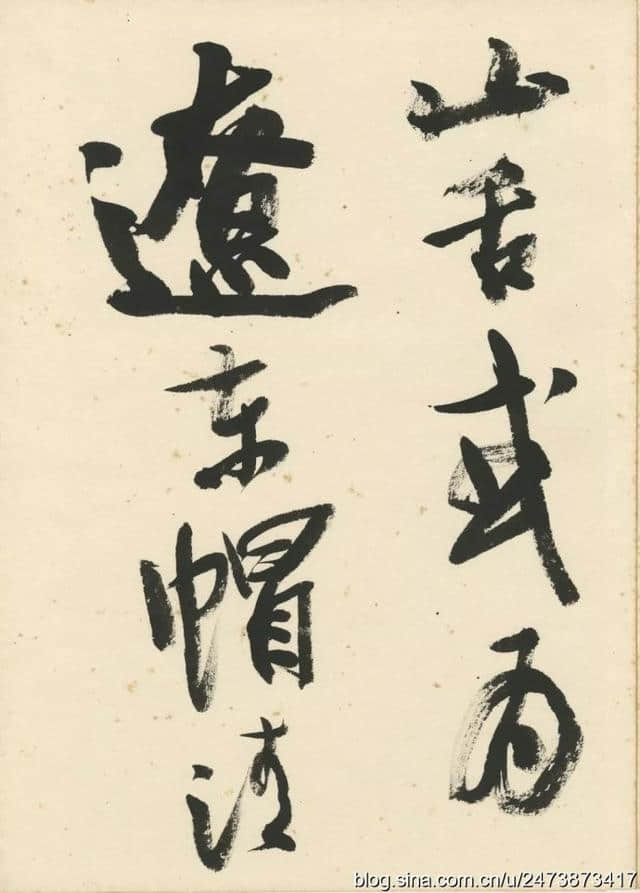 山舌或為
遼東帽清
blog.sina.com.cn/u/2473873417